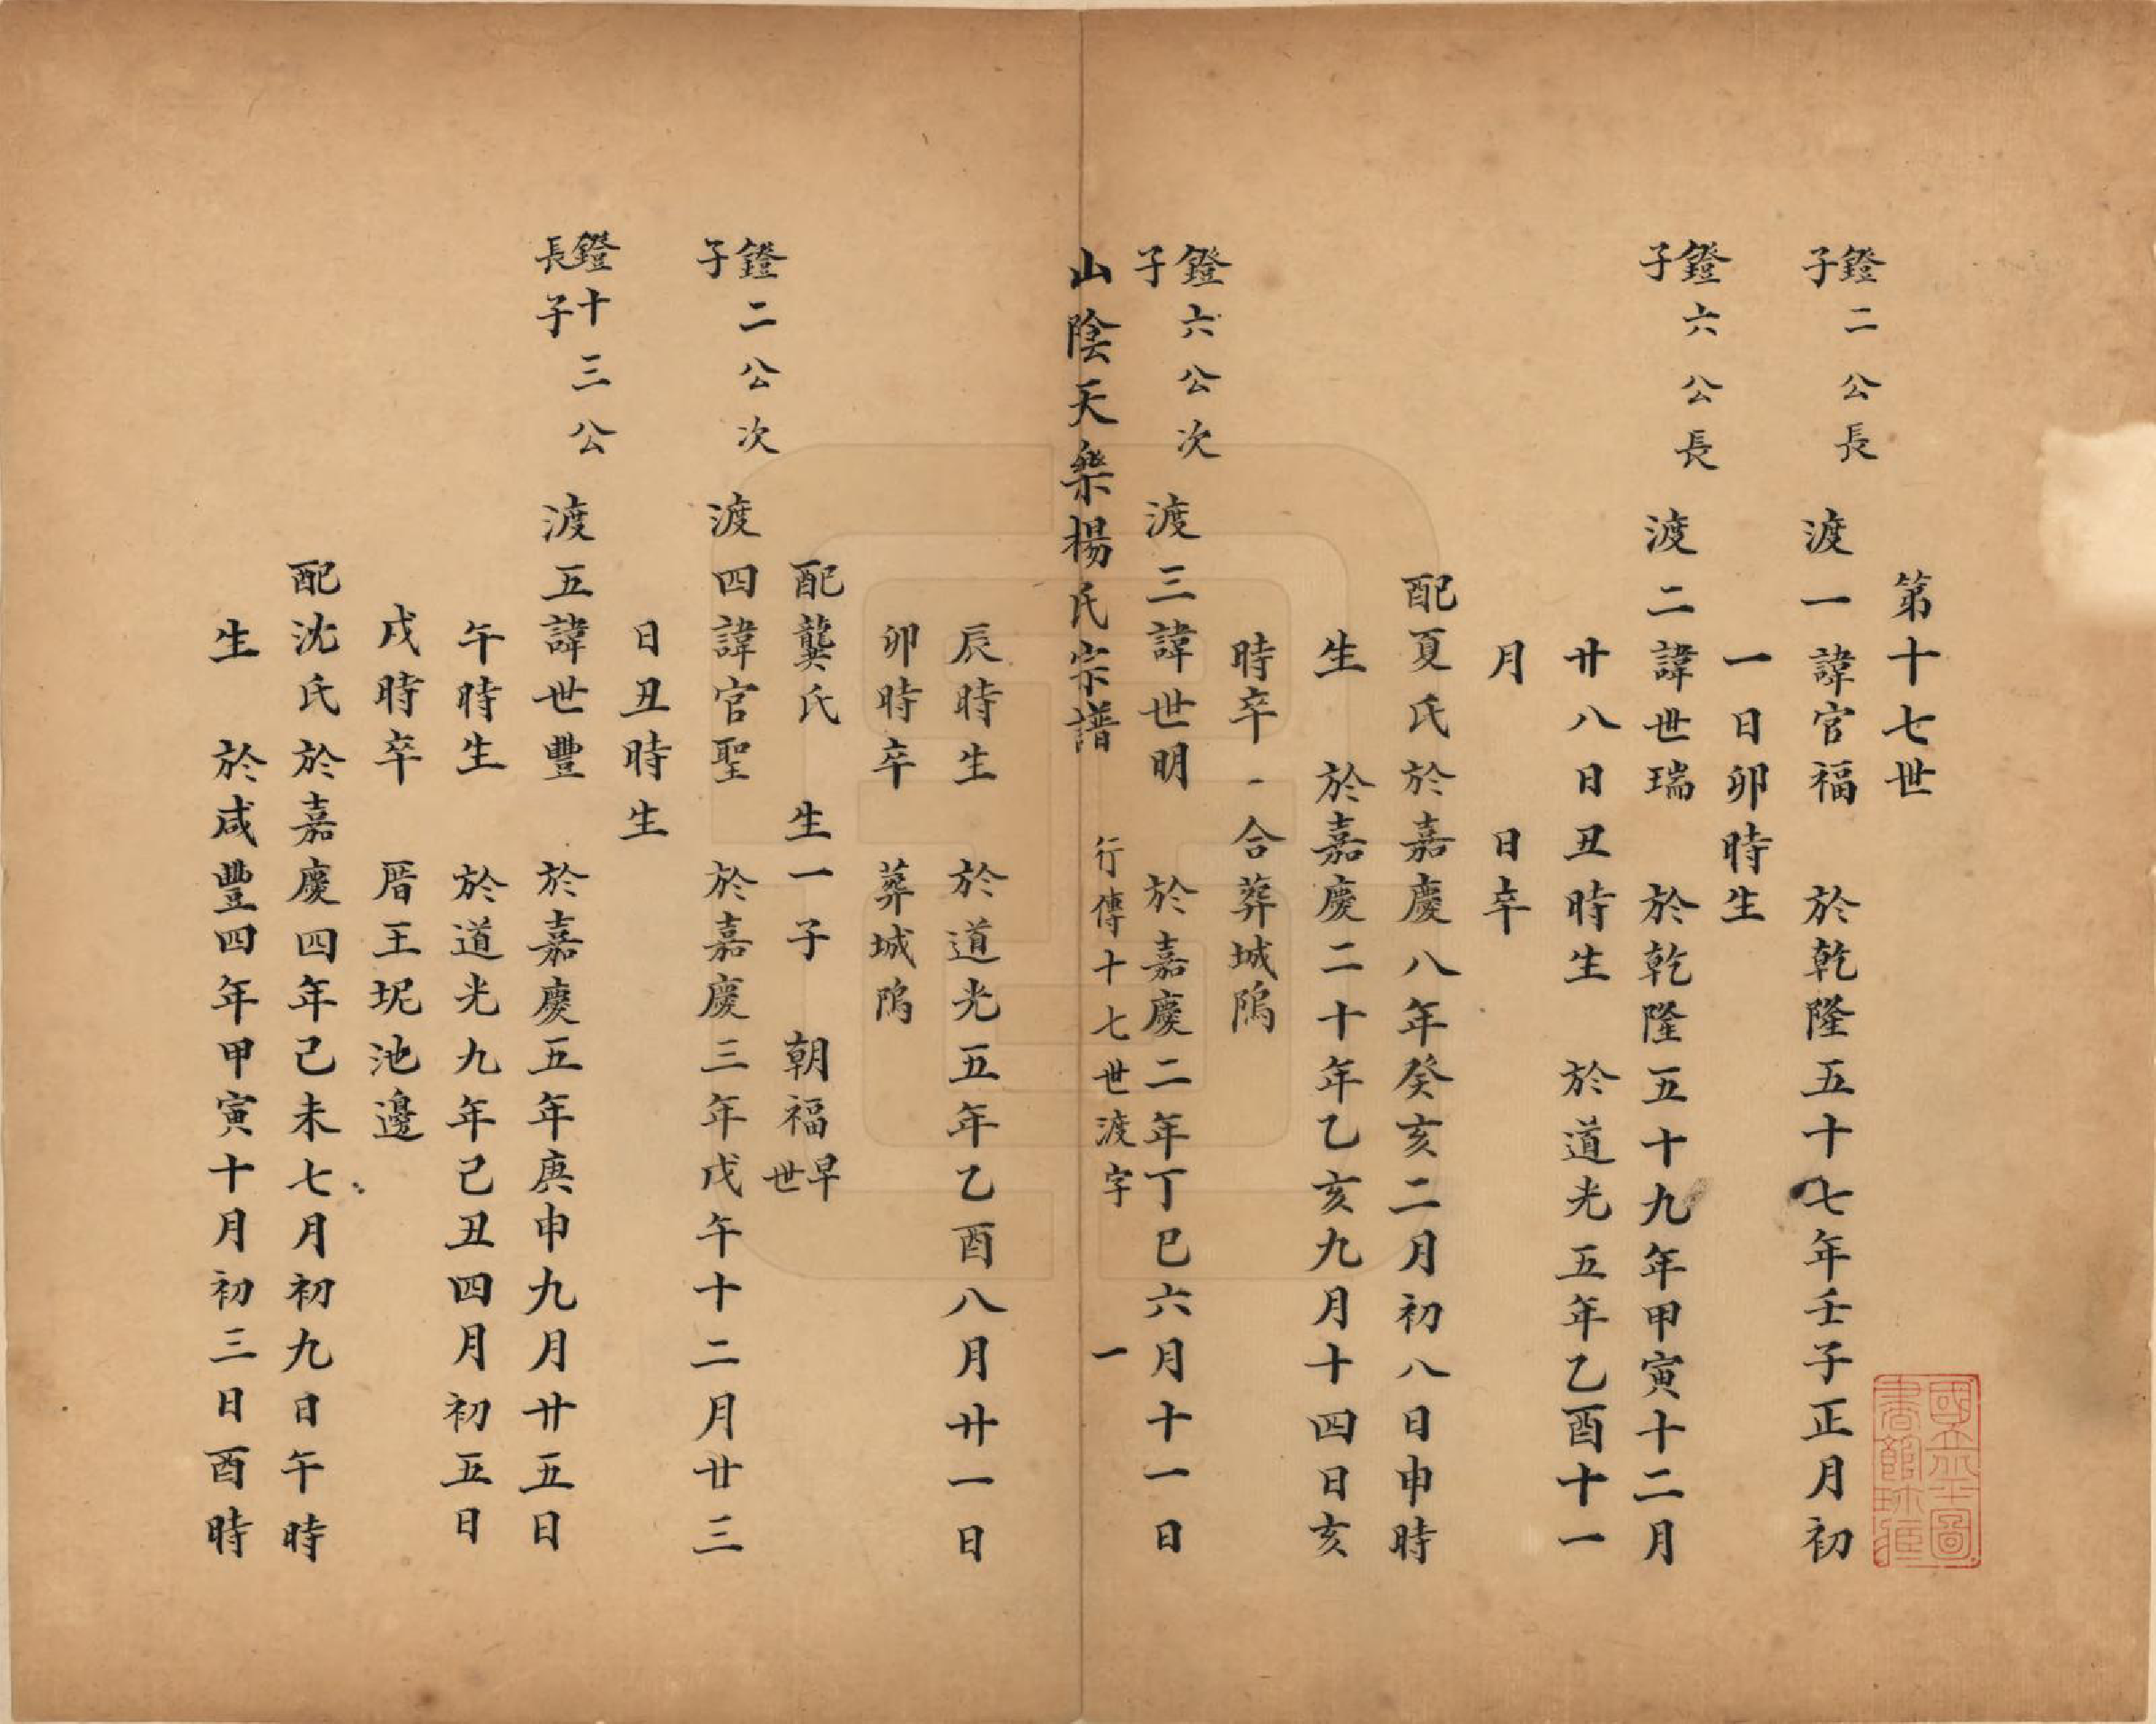 第十七世
鐙二公長子 渡一諱官福 於乾隆五十七年壬子正月初
一日卯時生
鐙六公長子 渡二諱世瑞 於乾隆五十九年甲寅十二月
廿八日丑時生 於道光五年乙酉十一
月 日卒
配夏氏於嘉慶八年癸亥二月初八日申時
生 於嘉慶二十年乙亥九月十四日亥
時卒 合葬城隖
鐙六公次子 渡三諱世明 於嘉慶二年丁巳六月十一日
山陰天樂楊氏宗譜 行傳十七世渡字 一
辰時生 於道光五年乙酉八月廿一日
卯時卒 葬城隖
配龔氏 生一子 朝福早世
鐙二公次子 渡四諱官聖 於嘉慶三年戊午十二月廿三
日丑時生
鐙十三公長子 渡五諱世豐 於嘉慶五年庚申九月廿五日
午時生 於道光九年己丑四月初五日
戌時卒 厝王坭池邊
配沈氏於嘉慶四年己未七月初九日午時
生 於咸豐四年甲寅十月初三日酉時
國立北平圖書館珍藏